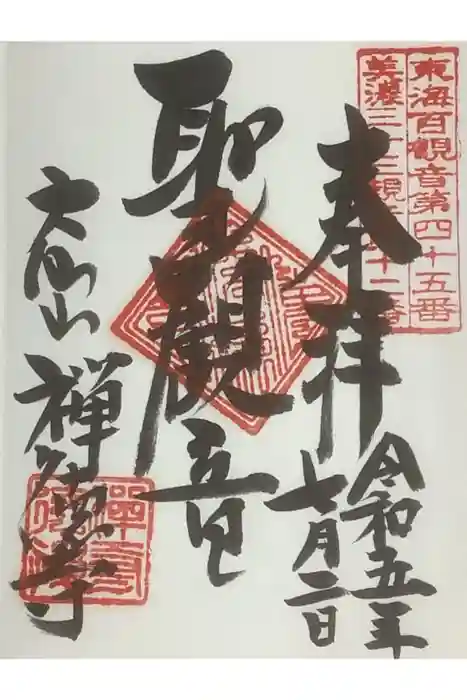 東海百観音第四十五番
美濃三十三観音十二番
奉拝
令和五年
七月二日
聖觀音
大仙山
禅徳寺